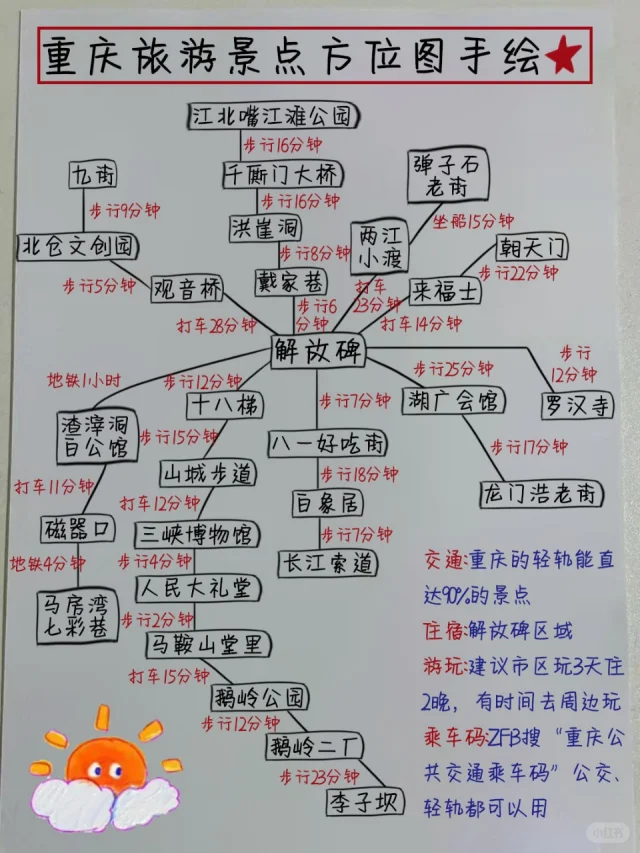 重庆旅游景点方位图手绘
江北嘴江滩公园
步行16分钟
千厮门大桥
步行16分钟
洪崖洞
步行8分钟
戴家巷
步行6
分钟
九街
步行9分钟
北仓文创园
步行5分钟
观音桥
打车28分钟
弹子石
老街
坐船15分钟
两江
小渡
打车
23分钟
朝天门
步行22分钟
来福士
打车14分钟
解放碑
地铁1小时
渣滓洞
白公馆
打车11分钟
磁器口
地铁4分钟
马房湾
七彩巷
步行12分钟
十八梯
步行15分钟
山城步道
打车12分钟
三峡博物馆
步行4分钟
人民大礼堂
步行2分钟
马鞍山堂里
打车15分钟
鹅岭公园
步行12分钟
鹅岭二厂
步行23分钟
李子坝
步行7分钟
八一好吃街
步行18分钟
白象居
步行7分钟
长江索道
步行25分钟
湖广会馆
步行17分钟
龙门浩老街
步行
12分钟
罗汉寺
交通:重庆的轻轨能直
达90%的景点
住宿:解放碑区域
游玩:建议市区玩3天住
2晚，有时间去周边玩
乘车码:ZFB搜“重庆公
共交通乘车码”公交、
轻轨都可以用
小红书